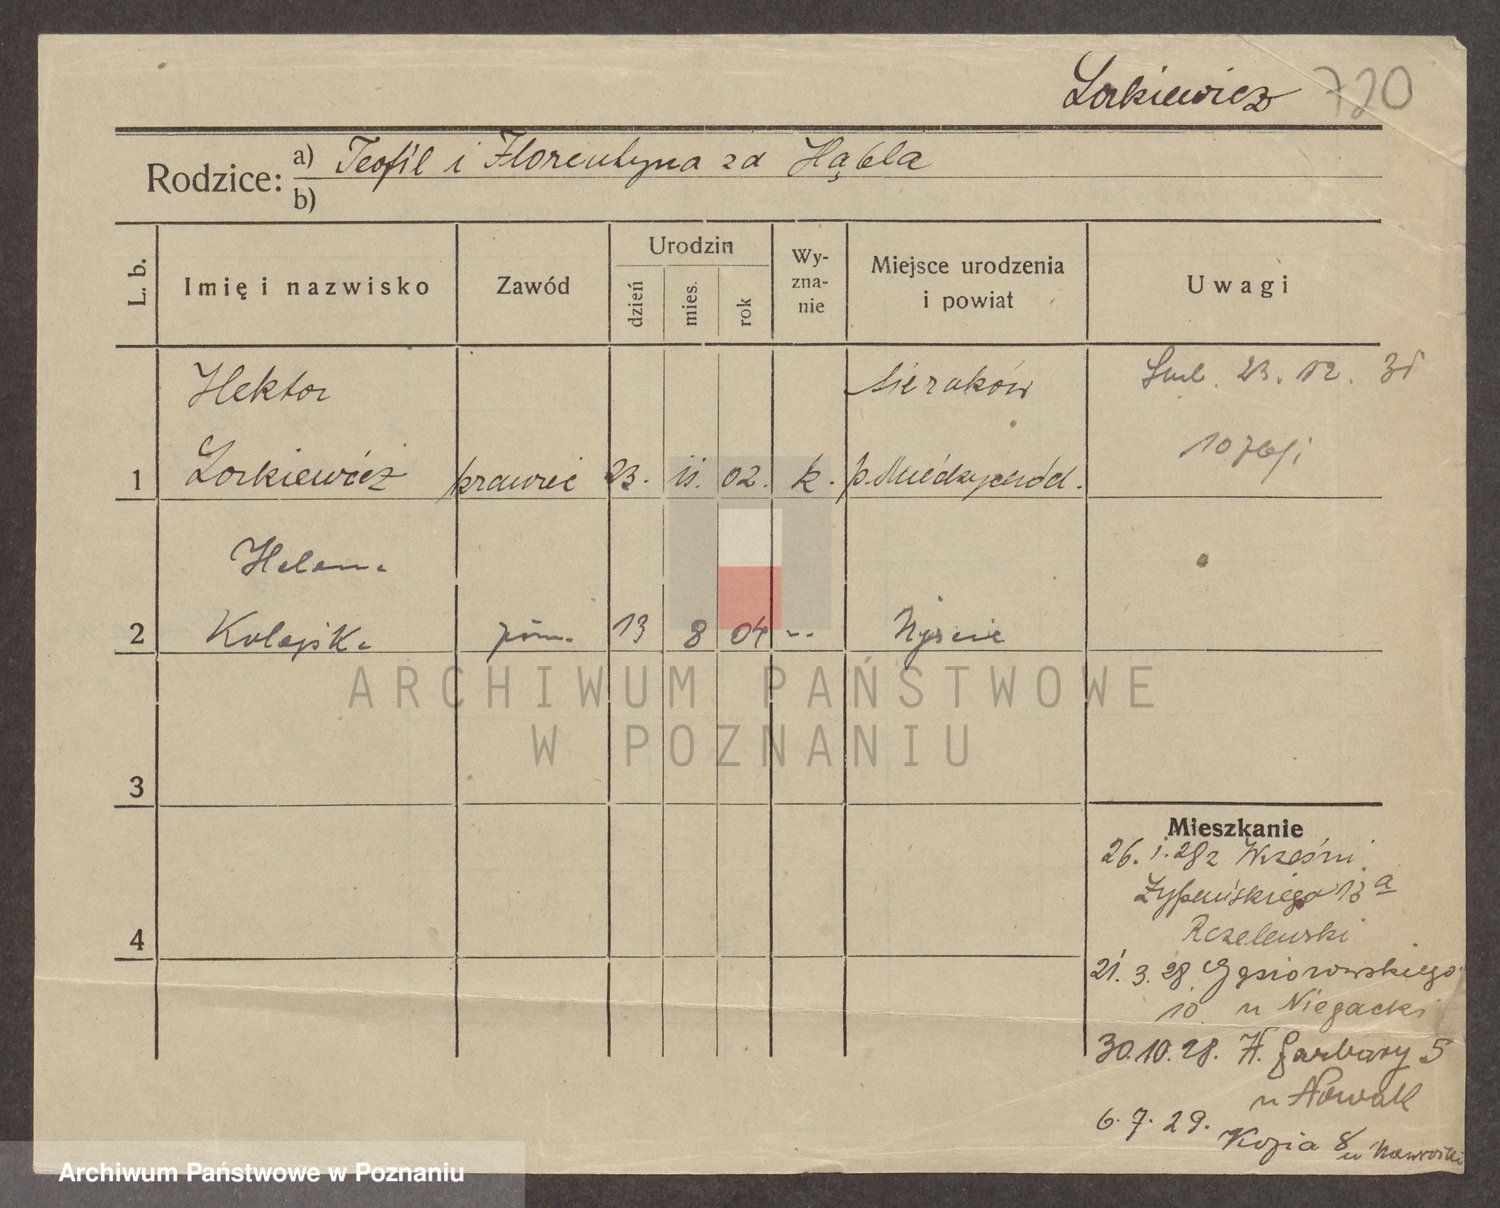 Lorkiewicz 720
Rodzice: a) Teofil i Florentyna zd Hąbla
b)
L. b.
Imię i nazwisko
Zawód
Urodzin
dzień
mies.
rok
Wy-
zna-
nie
Miejsce urodzenia
i powiat
Uwagi
Hektor
Sieraków
23. 12. 31
1 Lorkiewicz krawiec 23. 11. 02. k. p. Międzychód.
Helena
2 Kolejska 13 8 04 -..
3
4
Mieszkanie
26. 1. 28 z Wrześni
13 a
21. 3. 28. Gąsiorowskiego
10 u Niegacki
30.10.28. W. Garbary 5
u Nowak
6. 7. 29.
Kozia 8 u Nawrocki
ARCHIWUM PAŃSTWOWE
W POZNANIU
Archiwum Państwowe w Poznaniu